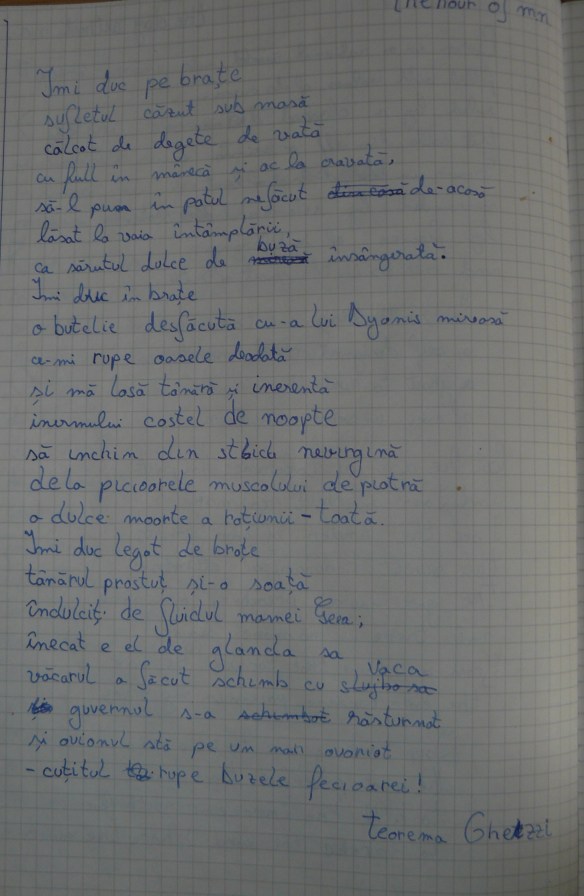 the hour of mn
Imi duc pe brațe
sufletul căzut sub masă
călcat de degete de vată
cu full în mânecă și ac la cravată,
să-l pun în patul nefăcut din casă de-acasă
lăsat la voia întâmplării,
ca sărutul dulce de buză însângerată.
Imi duc în brațe
o butelie desfăcută cu-a lui Dyonis mireasă
ce-mi rupe oasele deodată
și mă lasă tânără și inerentă
inermului costel de noapte
să închin din sticlă nevirgină
dela picioarele muscalului de piatră
o dulce moarte a rațiunii - toată.
Imi duc legat de brațe
tânărul prostuț și-o soață
îndulciți de fluidul mamei Geea;
înecat e el de glanda sa
văcarul a făcut schimb cu slujba sa vaca
guvernul s-a schimbat răsturnat
și avionul stă pe un mal avariat
- cuțitul rupe buzele fecioarei!
teorema Ghetzzi